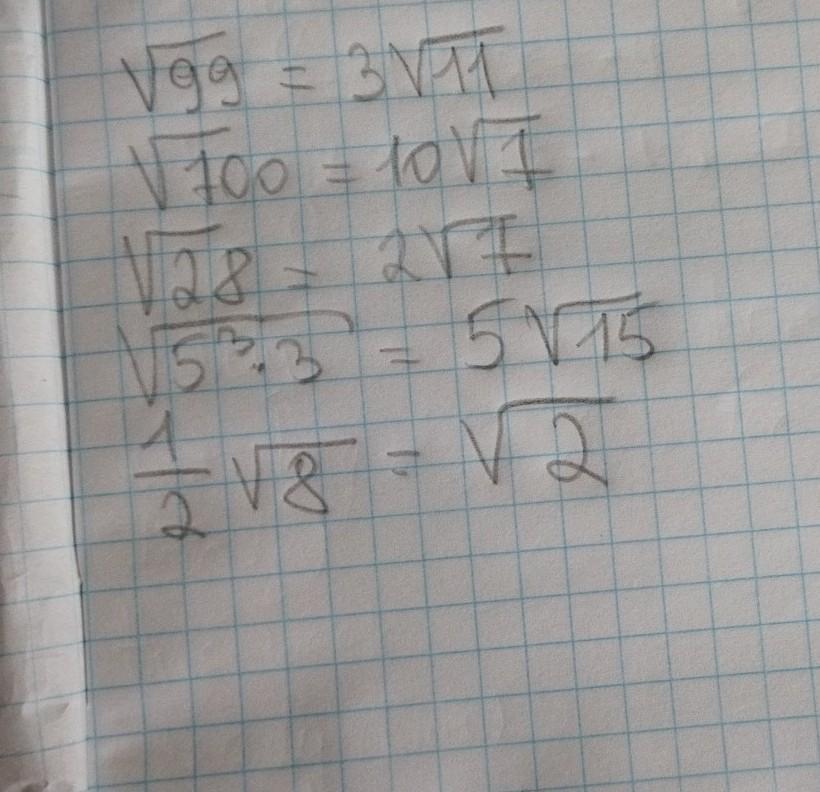 √99 = 3√11
√700 = 10√7
√28 = 2√7
√5³·3 = 5√15
1/2 √8 = √2